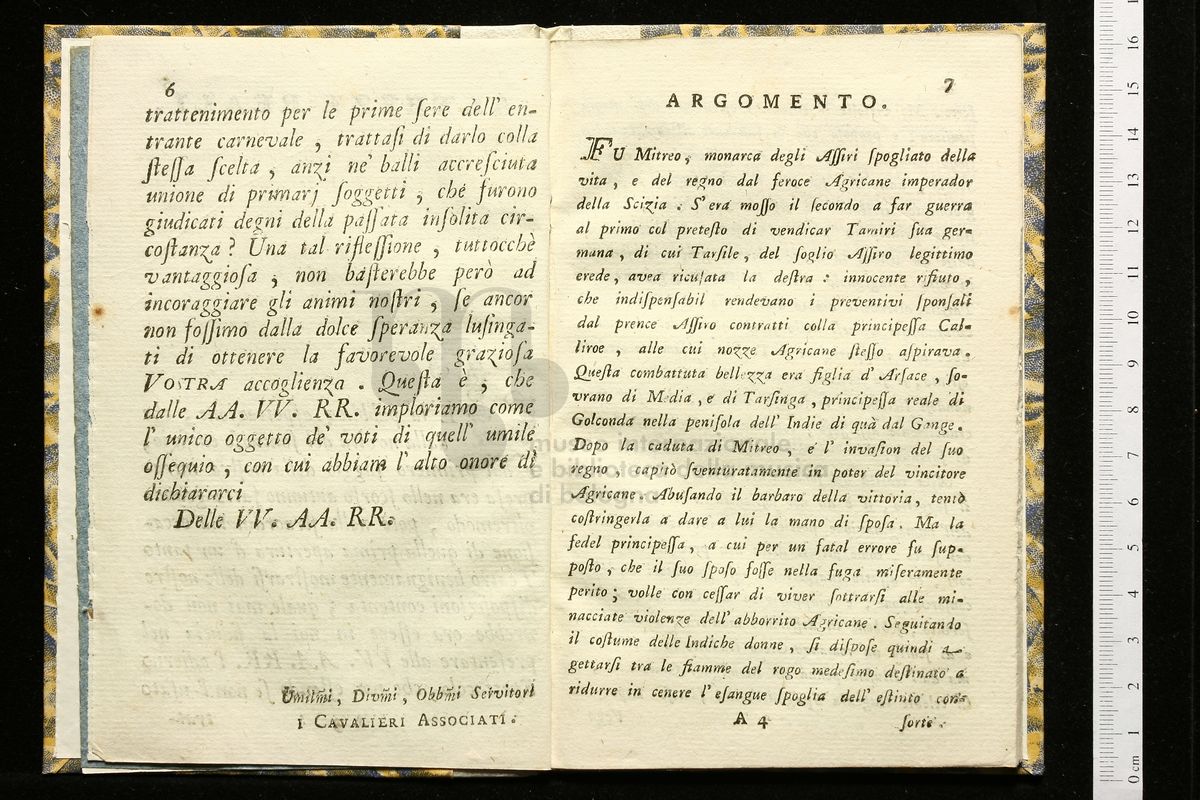 6
trattenimento per le prime ſere dell' en-
trante carnevale , trattaſi di darlo colla
ſteſſa ſcelta , anzi ne' balli accreſciuta
unione di primarj ſoggetti , che furono
giudicati degni della paſſata inſolita cir-
coſtanza ? Una tal rifleſſione , tuttocchè
vantaggioſa , non baſterebbe però ad
incoraggiare gli animi noſtri , ſe ancor
non foſſimo dalla dolce ſperanza luſinga-
ti di ottenere la favorevole grazioſa
VOSTRA accoglienza . Queſta è , che
dalle AA. VV. RR. imploriamo come
l' unico oggetto de' voti di quell' umile
oſſequio , con cui abbiam l' alto onore di
dichiararci
Delle VV. AA. RR.
Umilm̃i , Divm̃i , Obbm̃i Servitori
I CAVALIERI ASSOCIATI .
7
ARGOMENTO.
FU Mitreo , monarca degli Aſſiri ſpogliato della
vita , e del regno dal feroce Agricane imperador
della Scizia . S'era moſſo il ſecondo a far guerra
al primo col preteſto di vendicar Tamiri ſua ger-
mana , di cui Tarſile , del ſoglio Aſſiro legittimo
erede , avea ricuſata la deſtra : innocente rifiuto ,
che indiſpenſabil rendevano i preventivi ſponſali
dal prence Aſſiro contratti colla principeſſa Cal-
liroe , alle cui nozze Agricane ſteſſo aſpirava .
Queſta combattuta bellezza era figlia d' Arſace , ſo-
vrano di Media , e di Tarſinga , principeſſa reale di
Golconda nella peniſola dell' Indie di quà dal Gange .
Dopo la caduta di Mitreo , e l' invaſion del ſuo
regno , capitò ſventuratamente in poter del vincitore
Agricane . Abuſando il barbaro della vittoria , tentò
coſtringerla a dare a lui la mano di ſpoſa . Ma la
fedel principeſſa , a cui per un fatal errore fu ſup-
poſto , che il ſuo ſpoſo foſſe nella fuga miſeramente
perito ; volle con ceſſar di viver ſottrarſi alle mi-
nacciate violenze dell' abborrito Agricane . Seguitando
il coſtume delle Indiche donne , ſi diſpoſe quindi a
gettarſi tra le fiamme del rogo medeſimo deſtinato a
ridurre in cenere l' eſangue ſpoglia dell' eſtinto con-
A 4
ſorte .
museo internazionale
e biblioteca della musica
di bologna
0 cm 1 2 3 4 5 6 7 8 9 10 11 12 13 14 15 16